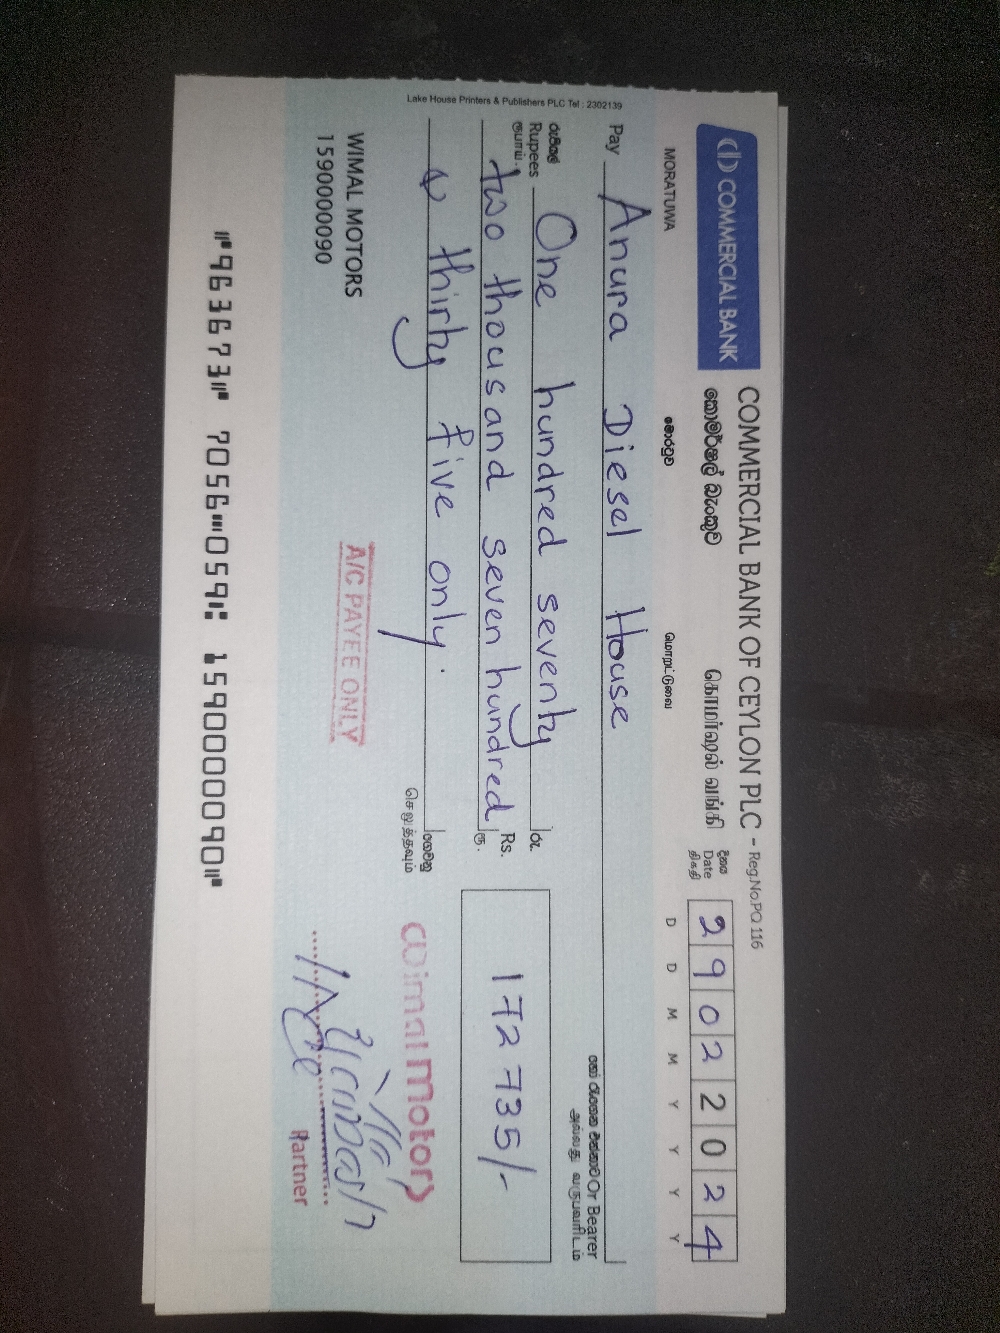 COMMERCIAL BANK
COMMERCIAL BANK OF CEYLON PLC - Reg.No.PQ 116
කොමර්ෂල් බැංකුව
கொமர்ஷல் வங்கி
දිනය
Date
திகதி
29022024
D D M M Y Y Y Y
MORATUWA
මොරටුව
மொறட்டுவை
Pay Anura Diesel House
හෝ රැගෙන එන්නාට Or Bearer
அல்லது வருபவரிடம்
රුපියල්
Rupees
ரூபாய்
One hundred seventy
two thousand seven hundred
& thirty five only.
රු.
Rs.
ரூ.
172 735/-
ගෙවනු
செலுத்தவும்
Lake House Printers & Publishers PLC Tel : 2302139
WIMAL MOTORS
1590000090
A/C PAYEE ONLY
Wimal Motors
Partner
⑈963673⑈ 7056⑉059⑆ 1590000090⑈